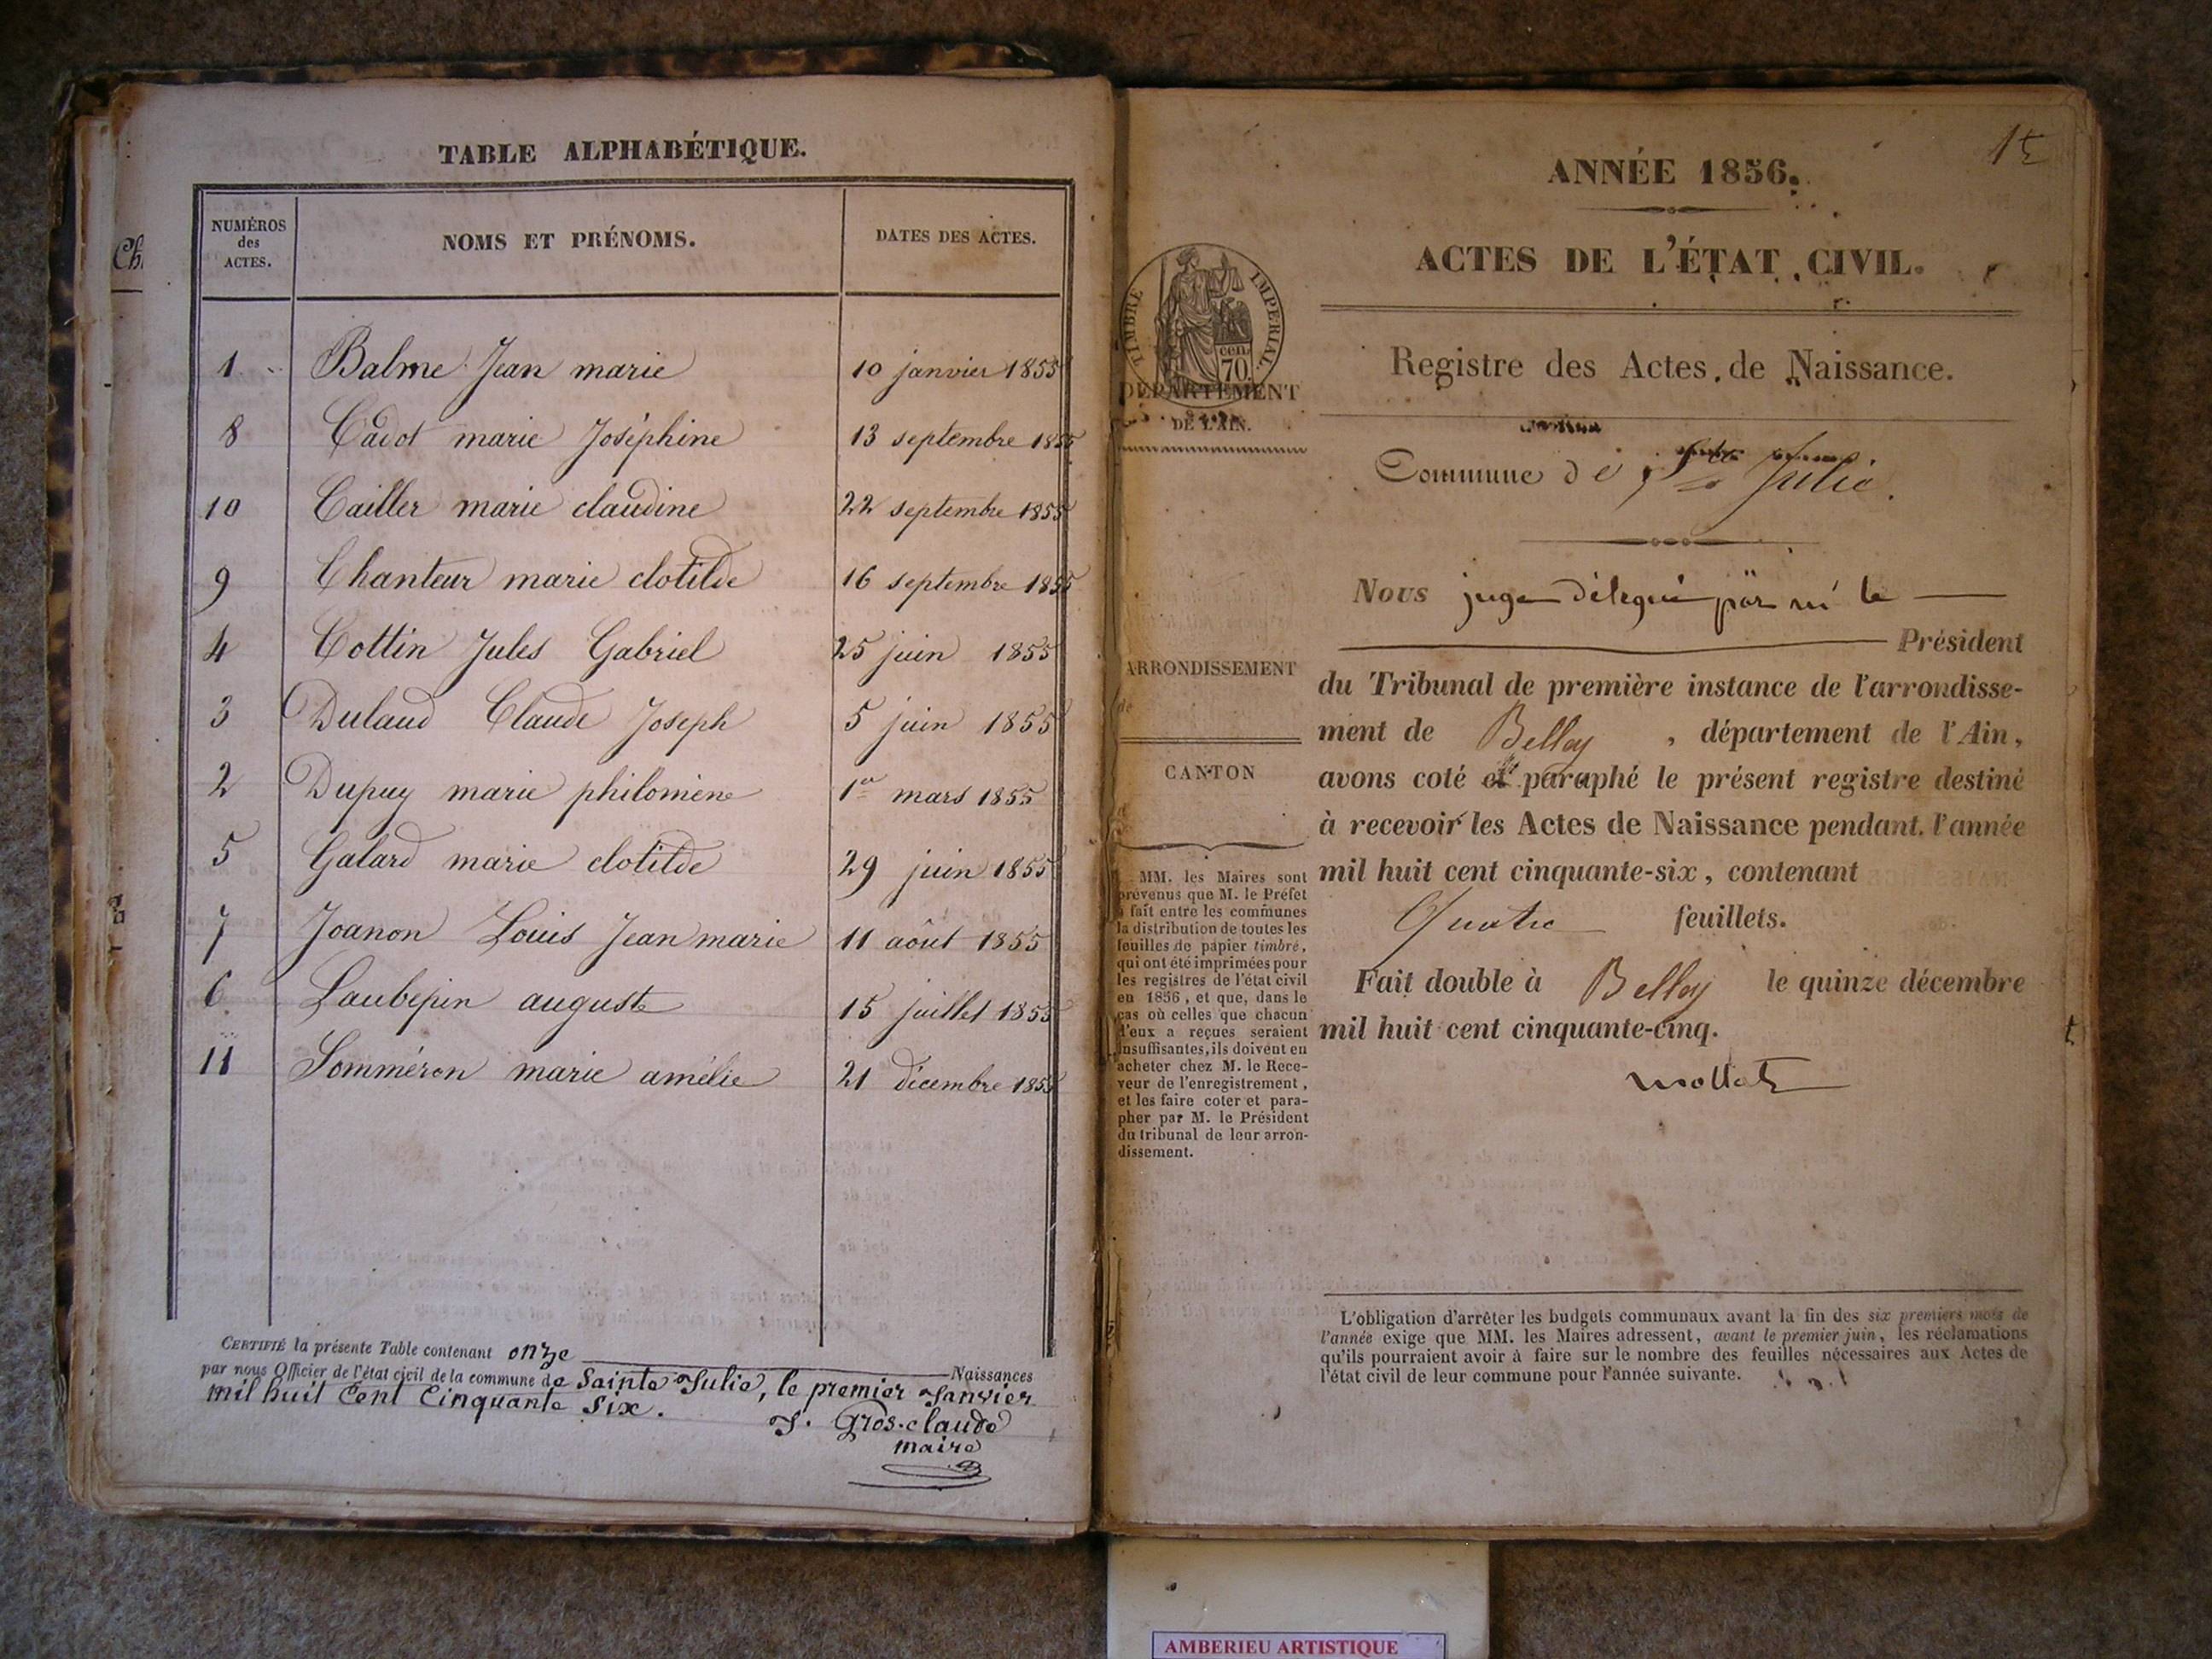 TABLE ALPHABÉTIQUE.
NUMÉROS
des
ACTES.
NOMS ET PRÉNOMS.
DATES DES ACTES.
1 Balme Jean marie 10 janvier 1855
8 Cadot marie Joséphine 13 septembre 1855
10 Cailler marie claudine 22 septembre 1855
9 Chanteur marie clotilde 16 septembre 1855
4 Cottin Jules Gabriel 25 juin 1855
3 Dulaud Claude Joseph 5 juin 1855
2 Dupuy marie philomène 1er mars 1855
5 Galard marie clotilde 29 juin 1855
7 Joanon Louis Jean marie 11 août 1855
6 Laubepin auguste 15 juillet 1855
11 Somméron marie amélie 21 décembre 1855
CERTIFIÉ la présente Table contenant onze
Naissances
par nous Officier de l'état civil de la commune de Sainte Julie, le premier Janvier
mil huit Cent Cinquante Six.
J. Gros-claude
maire
15
ANNÉE 1856.
ACTES DE L'ÉTAT CIVIL.
Registre des Actes de Naissance.
TIMBRE IMPERIAL
cen.
70
DÉPARTEMENT
DE L'AIN.
Commune de Ste Julie.
ARRONDISSEMENT
de
CANTON
MM. les Maires sont
prévenus que M. le Préfet
a fait entre les communes
la distribution de toutes les
feuilles de papier timbré,
qui ont été imprimées pour
les registres de l'état civil
en 1856, et que, dans le
cas où celles que chacun
d'eux a reçues seraient
insuffisantes, ils doivent en
acheter chez M. le Rece-
veur de l'enregistrement,
et les faire coter et para-
pher par M. le Président
du tribunal de leur arron-
dissement.
Nous juge délégué par mr le
Président
du Tribunal de première instance de l'arrondisse-
ment de Belley, département de l'Ain,
avons coté et paraphé le présent registre destiné
à recevoir les Actes de Naissance pendant l'année
mil huit cent cinquante-six, contenant
Quatre feuillets.
Fait double à Belley le quinze décembre
mil huit cent cinquante-cinq.
L'obligation d'arrêter les budgets communaux avant la fin des six premiers mois de
l'année exige que MM. les Maires adressent, avant le premier juin, les réclamations
qu'ils pourraient avoir à faire sur le nombre des feuilles nécessaires aux Actes de
l'état civil de leur commune pour l'année suivante.
AMBERIEU ARTISTIQUE